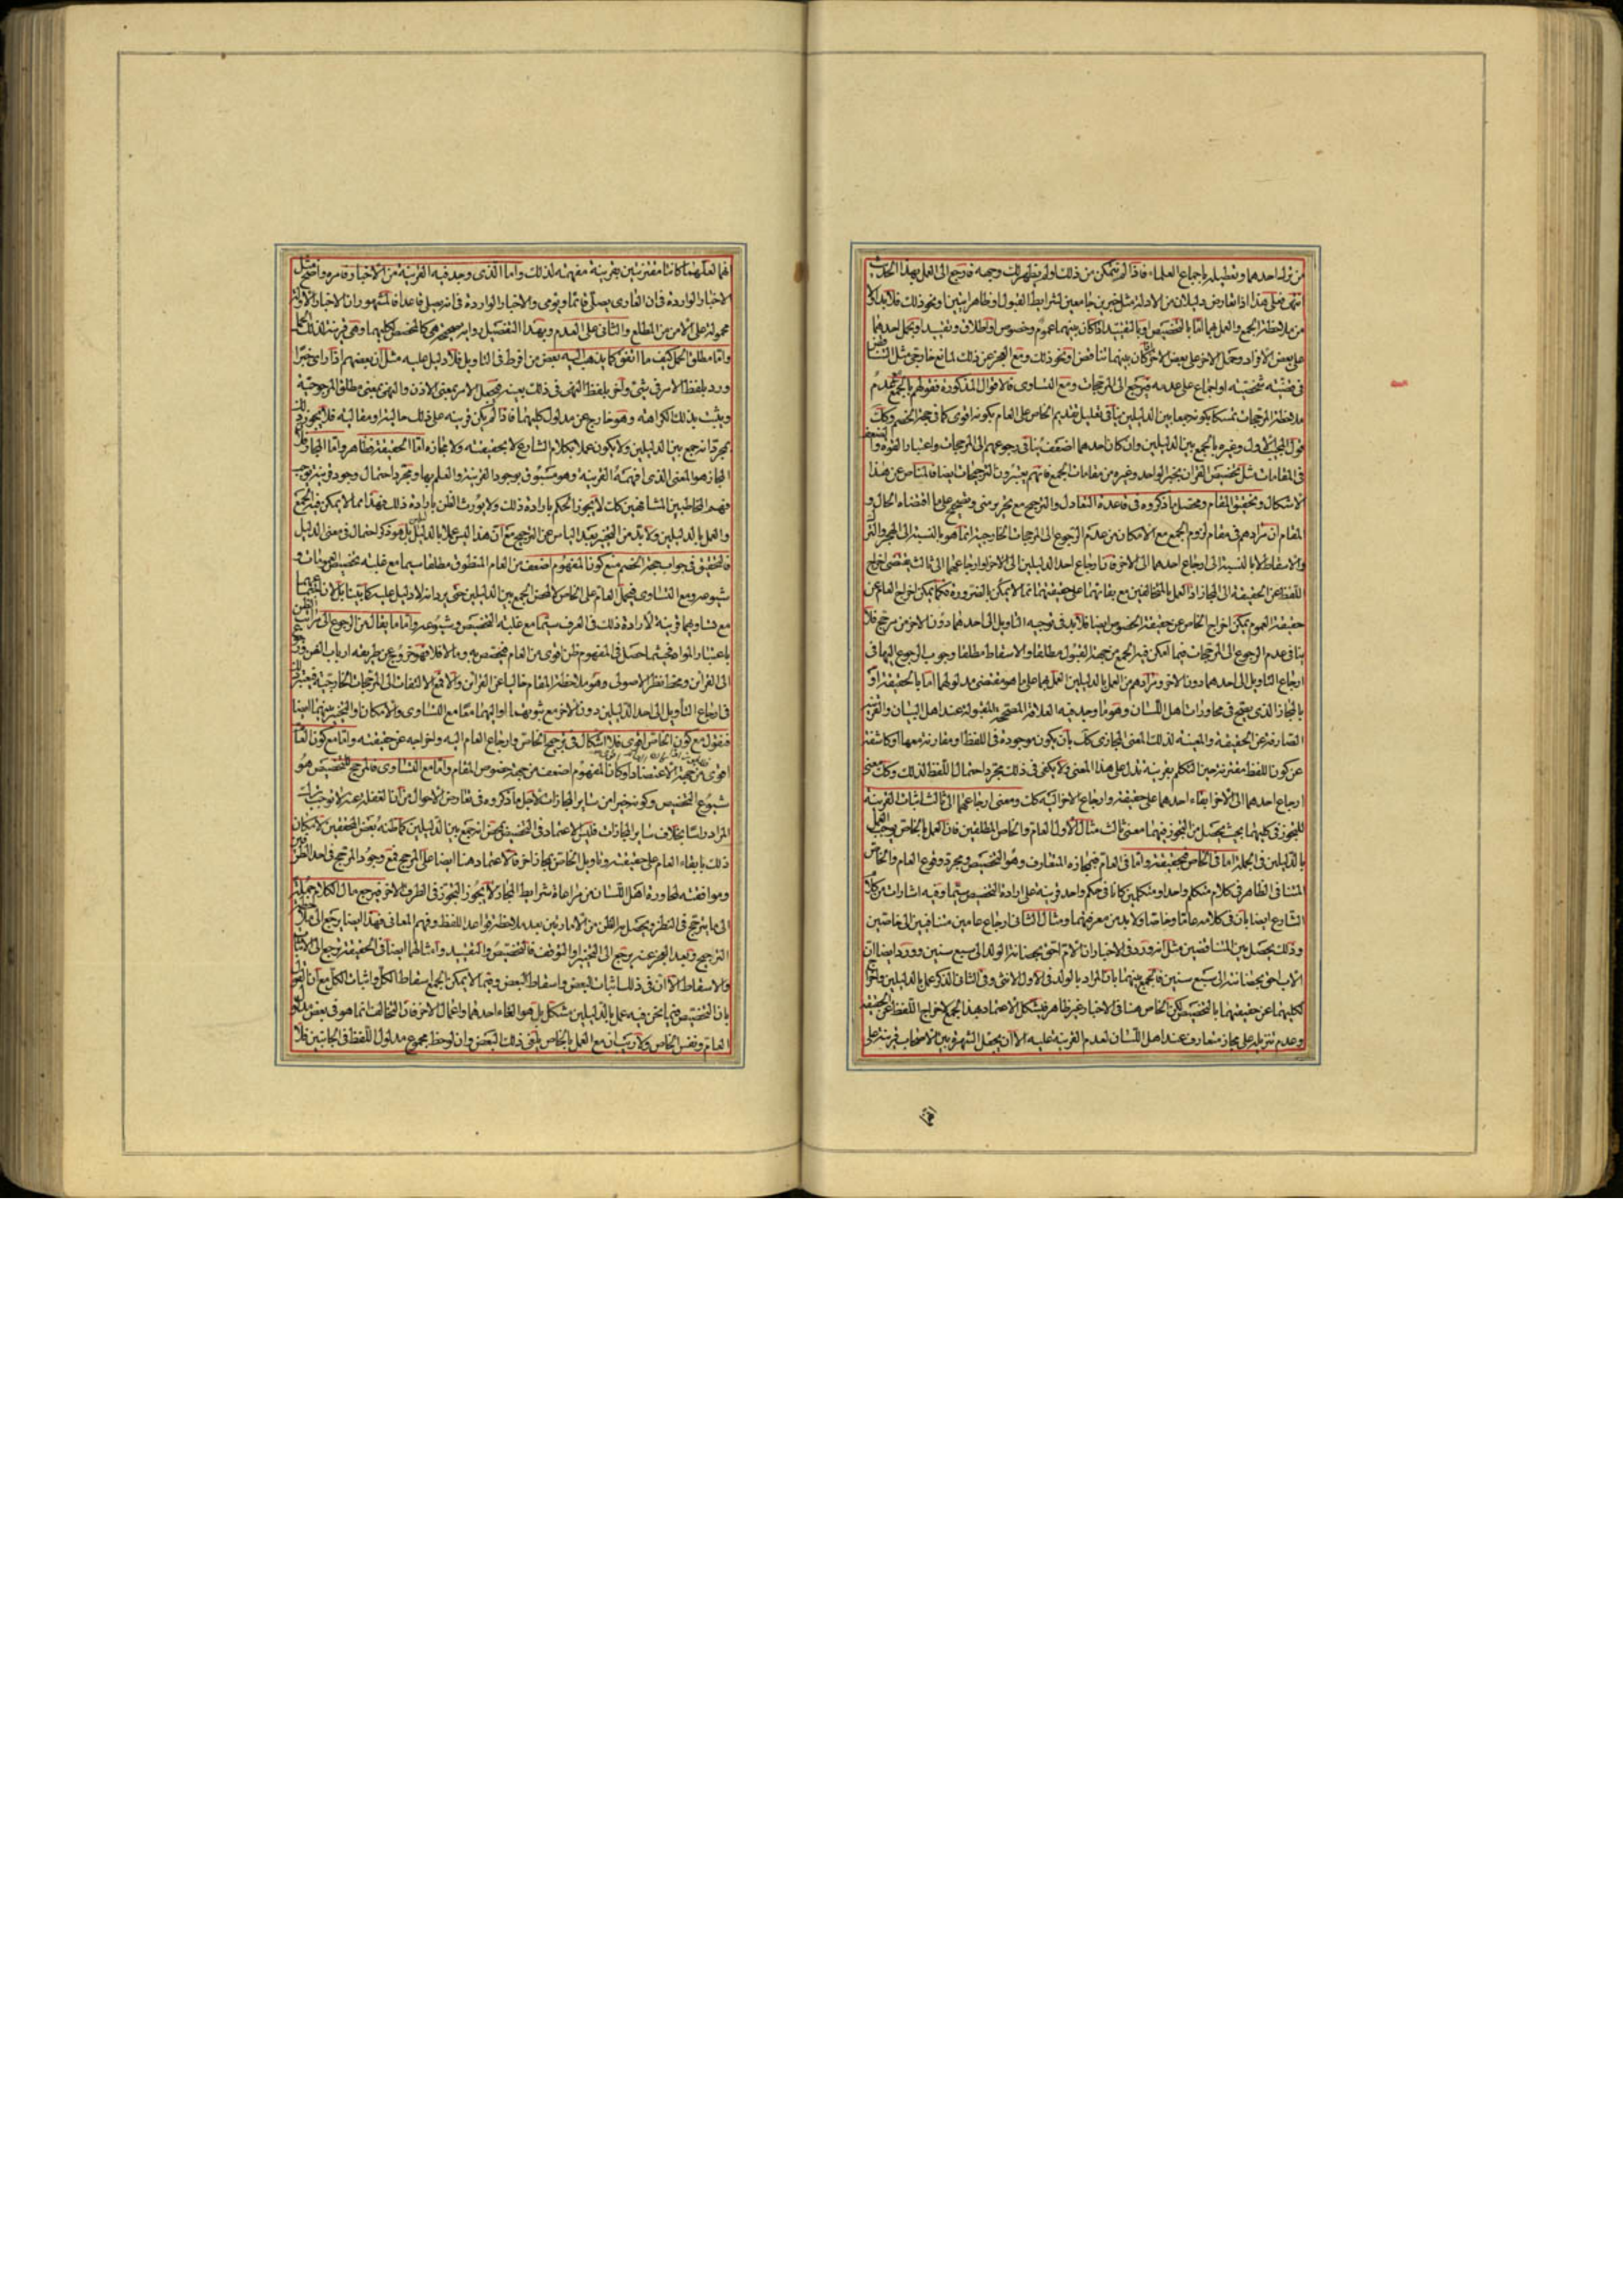 من ترك احدهما وتعطيله باجماع العلماء فاذا لم تتمكن من ذلك ولم يظهر لك وجهه فارجع الى العمل بهذا الحديث
انتهى فعلى هذا اذا تعارض دليلان من الادلة مثل خبرين جامعين لشرايط القبول او ظاهر ايتين ونحو ذلك فلابد اولا
من ملاحظة الجمع والعمل بهما امّا بالتخصيص او بالتقييد اذا كان بينهما عموم وخصوص او اطلاق وتقييد او بحمل احدهما
على بعض الافراد وحمل الاخر على بعض الاخر كان بينهما تناقض او نحو ذلك ومع العجز عن ذلك لمانع خارجي مثل التناقض
في قضيّة شخصيّة او اجماع على عدمه فيرجع الى المرجّحات ومع التساوى فالاقوال المذكورة فقولهم بالجمع مع عدم
ملاحظة المرجحات تمسكا بكونه جمعا بين الدليلين ينافي تعليل تقديم الخاص على العام بكونه اقوى كما في حجة الخصم وكك
قول المجيب الاول وغيره بالجمع بين الدليلين وان كان احدهما اضعف ينافي رجوعهم الى المرجحات واعتبار القوة والضعف
في المقامات مثل تخصيص القران بخبر الواحد وغيره من مقامات الجمع فانهم يعتبرون الترجيحات ايضا فما المناص عن هذا
الاشكال وتحقيق المقام ومحصل ما ذكروه في قاعدة التعادل والترجيح مع تحرير منى وتوضيح على ما اقتضاه الحال و
المقام ان مرادهم في مقام لزوم الجمع مع الامكان من عدم الرجوع الى المرجحات الخارجية انما هو بالنسبة الى الهجر والترك
والاسقاط لا بالنسبة الى ارجاع احدهما الى الاخر فان ارجاع احد الدليلين الى الاخر او ارجاعهما الى ثالث يقتضى اخراج
اللفظ عن الحقيقة الى المجاز اذ العمل بالمتخالفين مع بقائهما على حقيقتهما مما لا يمكن بالضرورة فكما يمكن اخراج العام عن
حقيقة العموم يمكن اخراج الخاص عن حقيقة الخصوص ايضا فلابد في توجيه التاويل الى احدهما دون الاخر من مرجح فلا
ينافي عدم الرجوع الى المرجحات فيما امكن فيه الجمع من جهة القبول مطلقا والاسقاط مطلقا وجوب الرجوع اليها في
ارجاع التاويل الى احدهما دون الاخر ومرادهم من العمل بالدليلين العمل بهما على ما هو مقتضى مدلولهما امّا بالحقيقة او
بالمجاز الذى يصح في محاورات اهل اللسان وهو ما وجد فيه العلاقة المصححة المقبولة عند اهل البيان والقرينة
الصارفة عن الحقيقة والمعينة لذلك المعنى المجازى كك بان يكون موجودة في اللفظ او مقارنة معها او كاشفة
عن كون اللفظ مقترنة حين التكلم بقرينة تدل على هذا المعنى ولا يكفى في ذلك مجرد احتمال اللفظ لذلك وكك معنى
ارجاع احدهما الى الاخر ابقاء احدهما على حقيقته وارجاع الاخر اليه كك ومعنى ارجاعهما الى ثالث اثبات القرينة
للتجوز في كليهما بحيث يحصل من التجوز فيهما معنى ثالث مثال الاول العام والخاص المطلقين فان العمل بالخاص يوجب العمل
بالدليلين في الجملة اما في الخاص فبحقيقته واما في العام فبمجازه المتعارف وهو التخصيص ومجرد وقوع العام والخاص
المتنافي الظاهر في كلام متكلم واحد او متكلمين كانا في حكم واحد قرينة على ارادة التخصيص سيما وفيه اشارات من كلام
الشارع ايضا بان في كلامه عاما وخاصا ولا بد من معرفتهما ومثال الثانى ارجاع عامين متنافيين الى خاصين
وذلك يحصل بين المتناقضين مثل انه ورد في الاخبار ان الام احق بحضانة الولد الى سبع سنين وورد ايضا ان
الاب احق بحضانته الى سبع سنين فالجمع بينهما بان المراد بالولد في الاول الانثى وفي الثانى الذكر عمل بالدليلين واخراج
لكليهما عن حقيقتهما بالتخصيص لكن الخاص هنا في الاخبار غير ظاهر فيشكل الاعتماد بهذا الجمع لاخراج اللفظ عن الحقيقة
وعدم تنزيله على مجاز متعارف عند اهل اللسان لعدم القرينة عليه الا ان يجعل الشهرة بين الاصحاب قرينة على
انهما لعلهما كانتا مقترنتين بقرينة مفهمة لذلك واما الذى وجد فيه القرينة من الاخبار فامره واضح مثل
الاخبار الواردة في ان العارى يصلى قائما ويؤمى والاخبار الواردة في انه يصلى قاعدا فالمشهور ان الاخبار الاولة
محمولة على الامن من المطلع والثانى على العدم وبهذا التفصيل رواية صحيحة فهى كالمخصص لكليهما وهى قرينة لذلك الجمع
واما مطلق الحمل كيف ما اتفق كما يذهب اليه بعض من افرط في التاويل فلا دليل عليه مثل ان بعضهم اذا راى خبرا
ورد بلفظ الامر في شئ واخر بلفظ النهى في ذلك بعينه فيجعل الامر بمعنى الاذن والنهى بمعنى مطلق المرجوحية
ويثبت بذلك الكراهة وهو خارج عن مدلول كليهما فاذا لم يكن قرينة على ذلك حالية او مقالية فلا يجوز ذلك
بمجرد انه جمع بين الدليلين ولا يكون عملا بكلام الشارع لا بحقيقته ولا مجازه امّا الحقيقة فظاهر واما المجاز فلان
المجاز هو المعنى الذى افهمته القرينة وهو مسبوق بوجود القرينة والعلم بها ومجرد احتمال وجود قرينة توجب
فهم المخاطبين المشافهين كك لا يجوز الحكم بارادة ذلك ولا يورث الظن بارادة ذلك فهذا مما لا يمكن فيه الجمع
والعمل بالدليلين ولابد من التخيير بعد الياس عن الترجيح مع ان هذا ليس عملا بالدليلين بل هو ذكر احتمال في معنى الدليل
فالتحقيق في جواب حجة الخصم منع كون المفهوم اضعف من العام المنطوق مطلقا سيما مع غلبة تخصيص العمومات و
شيوعه ومع التساوى فيحمل العام على الخاص لا لمحض الجمع بين الدليلين حتى يرد انه لا دليل عليه كما بينا بل لان
مع تساويهما قرينة لارادة ذلك في العرف سيما مع غلبة التخصيص وشيوعه واما ما يقال من الرجوع الى مراتب الظن
باعتبار المواضع فيما حصل في المفهوم ظن اقوى من العام فيخصص به وما لا فلا فهو خروج عن طريقة ارباب الفن
الى القراين ومحط نظر الاصولى وهو ملاحظة المقام خاليا عن القراين والا فمع الالتفات الى المرجحات الخارجية
في ارجاع التأويل الى احد الدليلين دون الاخر مع ثبوتهما او اليهما معا مع التساوى والامكان والتخيير بينهما ايضا
فنقول مع كون الخاص اقوى فلا اشكال في ترجيح الخاص وارجاع العام اليه واخراجه عن حقيقته واما مع كون العام
اقوى من جهة الاعتضاد او كان المفهوم اضعف من جهة خصوص المقام واما مع التساوى فالمرجح للتخصيص هو
شيوع التخصيص وكونه خيرا من ساير المجازات لاجل ما ذكروه في تعارض الاحوال من ان الغفلة عنه لا توجب
المراد راسا بخلاف ساير المجازات فليس الاعتماد في التخصيص بمحض انه جمع بين الدليلين كما ظنه بعض المحققين لامكان
ذلك بابقاء العام على حقيقته وتاويل الخاص بمجاز اخر فالاعتماد هنا ايضا على المرجح فمع وجود المرجح في احد الطرفين
وموافقته لمحاورة اهل اللسان من مراعاة شرايط المجاز لا يجوز التجوز في الطرف الاخر فيرجع مال الكلام
الى ما يترجح في النظر ويحصل به الظن من الامارتين بعد ملاحظة قواعد اللفظ وفهم المعانى فهذا ايضا يرجع الى
الترجيح وبعد العجز عنه يرجع الى التخيير او التوقف فالتخصيص والتقييد وامثالهما ايضا في الحقيقة يرجع الى الاثبات
والاسقاط الا ان في ذلك اثبات البعض واسقاط البعض وفيما لا يمكن الجمع اسقاط الكل واثبات الكل مع ان القول
بان التخصيص فيما نحن فيه عمل بالدليلين مشكل بل هو الغاء احدهما واعمال الاخر فان التخالف انما هو في بعض مدلول
العام ونفس الخاص ولا ريب ان مع العمل بالخاص يلغى ذلك البعض وان لوحظ مجموع مدلول اللفظ في الجانبين فلا